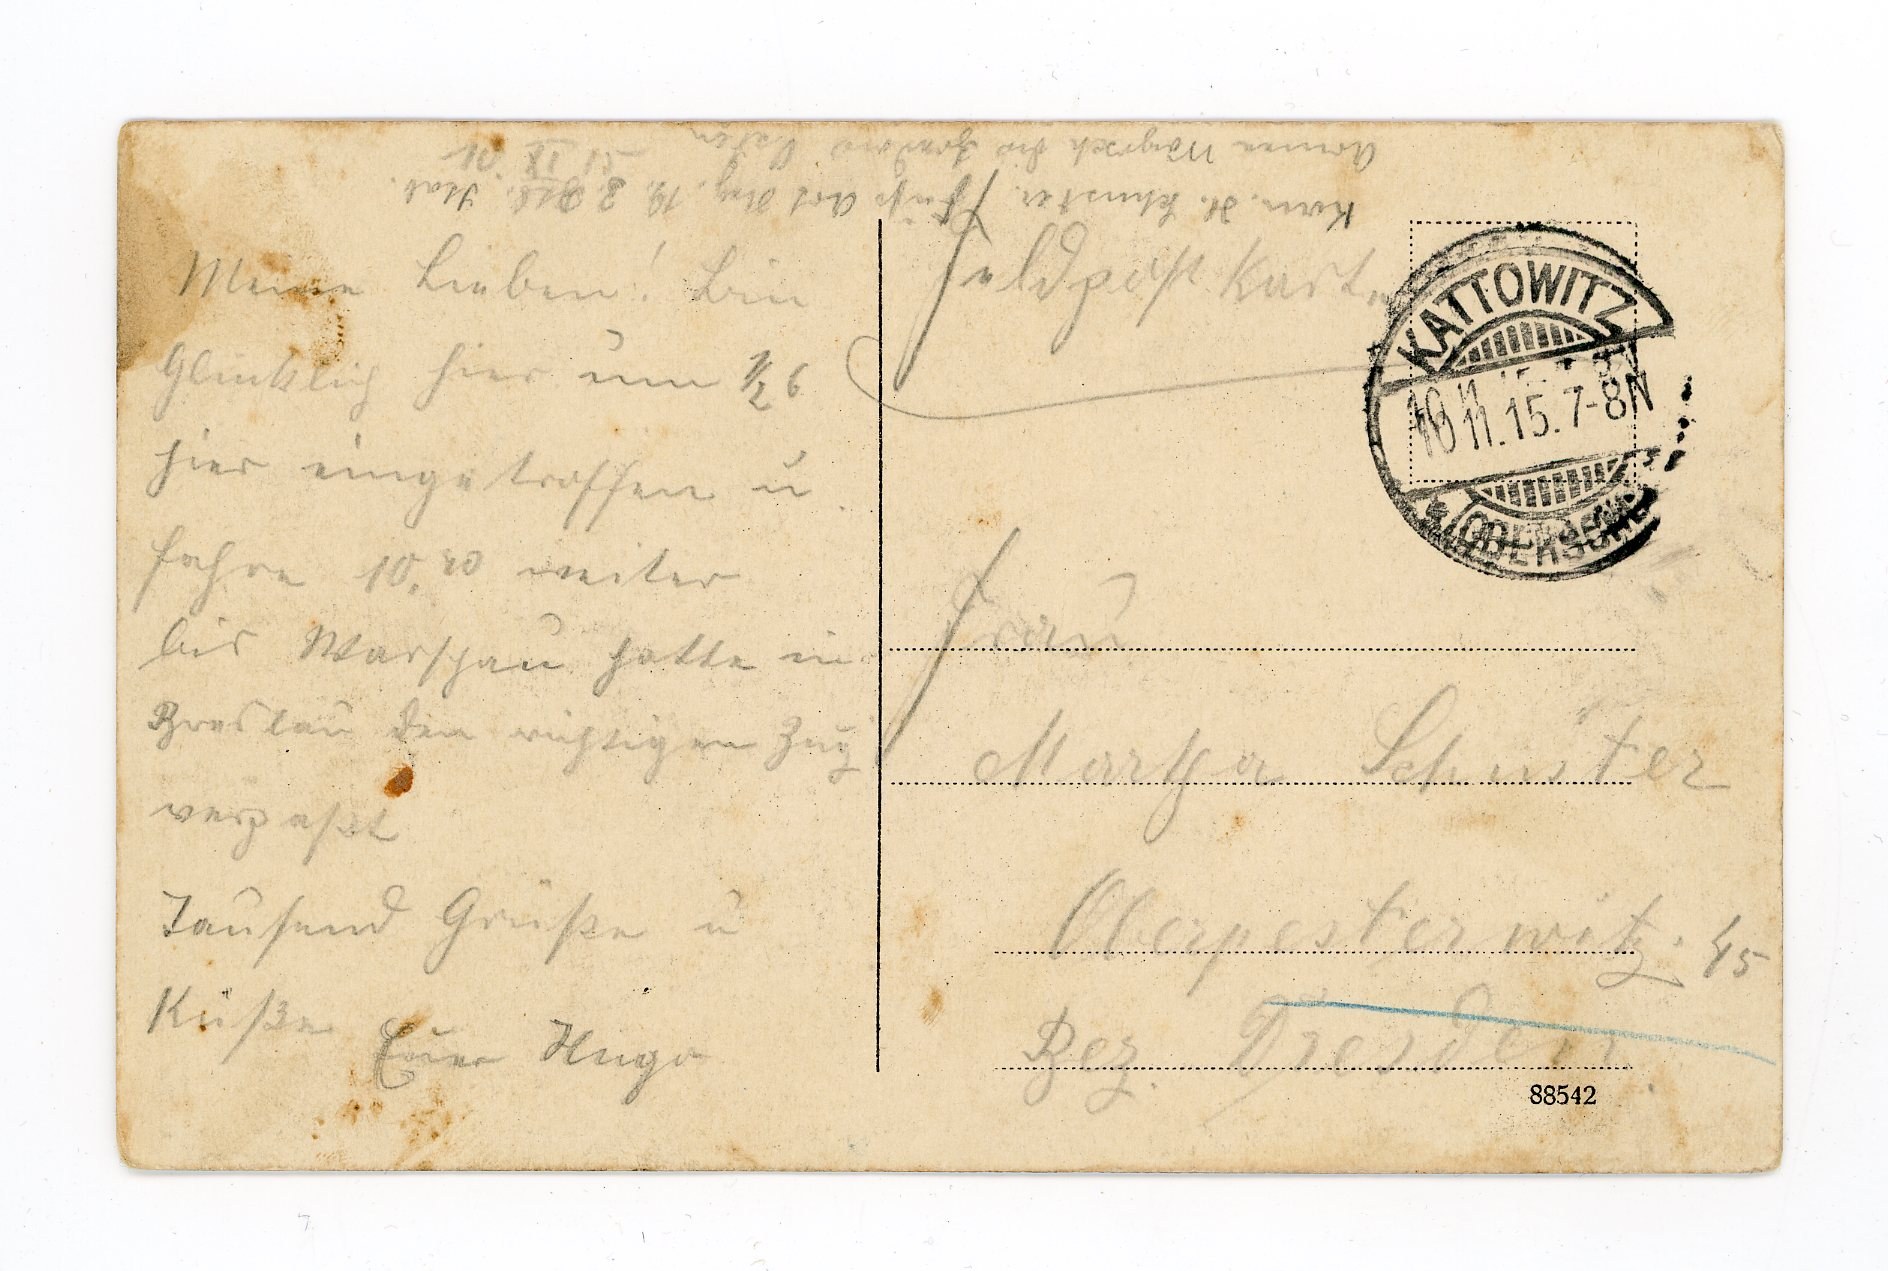 Kan. H. Schuster, Fuß Art Reg. 19. 2. Btl. Stab.
Armee Woyrsch
Feldpostkarte
KATTOWITZ
10.11.15.7-8N
OBERSCHL
Meine Lieben! Bin
Glücklich hier um 1/2 6
hier eingetroffen u
fahre 10,20 weiter
bis Warschau hatte in
Breslau den richtigen Zug
verpaßt
Tausend Grüße u
Küße Euer Hugo
Frau
Martha Schuster
Oberpesterwitz. 45
Bez. Dresden.
88542